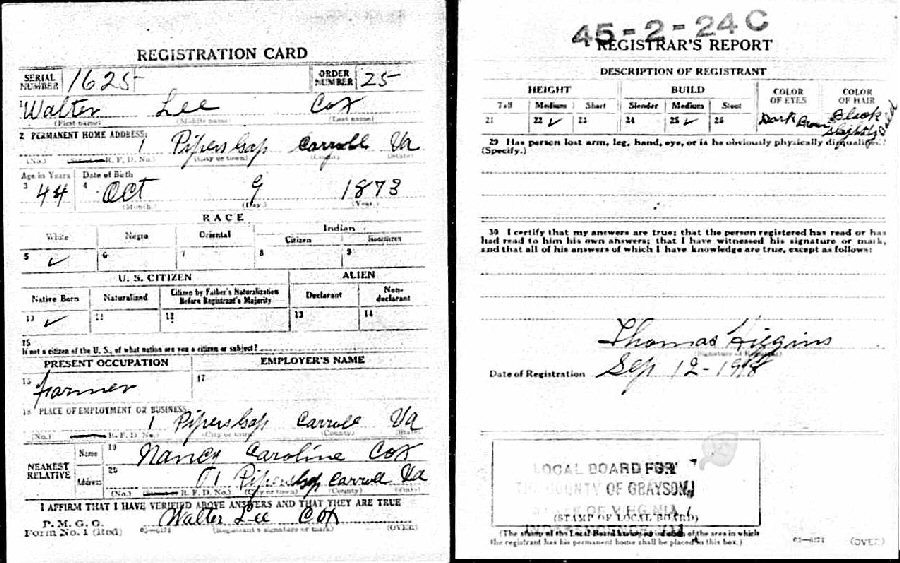 REGISTRATION CARD
SERIAL NUMBER 1625 ORDER NUMBER 25
Walter Lee Cox
(First name) (Middle name) (Last name)
2 PERMANENT HOME ADDRESS:
1 Pipers Gap Carroll Va
(No.) R. F. D. No. (City or town) (County) (State)
Age in Years Date of Birth
3 44 4 Oct 9 1873
(Month.) (Day.) (Year.)
RACE
White Negro Oriental Indian
Citizen Noncitizen
5 ✓ 6 7 8 9
U. S. CITIZEN ALIEN
Native Born Naturalized Citizen by Father's Naturalization Before Registrant's Majority Declarant Non-declarant
10 ✓ 11 12 13 14
15
If not a citizen of the U. S., of what nation are you a citizen or subject?
PRESENT OCCUPATION EMPLOYER'S NAME
16 Farmer 17
18 PLACE OF EMPLOYMENT OR BUSINESS:
1 Pipers Gap Carroll Va
(No.) R. F. D. No. (City or town) (County) (State)
NEAREST RELATIVE Name 19 Nancy Caroline Cox
Address 20 Pipers Gap Carroll Va
(No.) R. F. D. No.) (City or town) (County) (State)
I AFFIRM THAT I HAVE VERIFIED ABOVE ANSWERS AND THAT THEY ARE TRUE
P. M. G. O.
Form No. 1 (Red) Walter Lee Cox
(Registrant's signature or mark) (OVER)
45-2-24 C
REGISTRAR'S REPORT
DESCRIPTION OF REGISTRANT
HEIGHT BUILD COLOR OF EYES COLOR OF HAIR
Tall Medium Short Slender Medium Stout
21 22 ✓ 23 24 25 ✓ 26 Dark Brown Black
29 Has person lost arm, leg, hand, eye, or is he obviously physically disqualified?
(Specify.)
30 I certify that my answers are true; that the person registered has read or has
had read to him his own answers; that I have witnessed his signature or mark,
and that all of his answers of which I have knowledge are true, except as follows:
Thomas Higgins
(Signature of Registrar)
Date of Registration Sep 12-1918
LOCAL BOARD FOR
THE COUNTY OF GRAYSON,
STATE OF VIRGINIA
(STAMP OF LOCAL BOARD)
(The stamp of the Local Board having jurisdiction of the area in which
the registrant has his permanent home shall be placed in this box.)
(OVER)